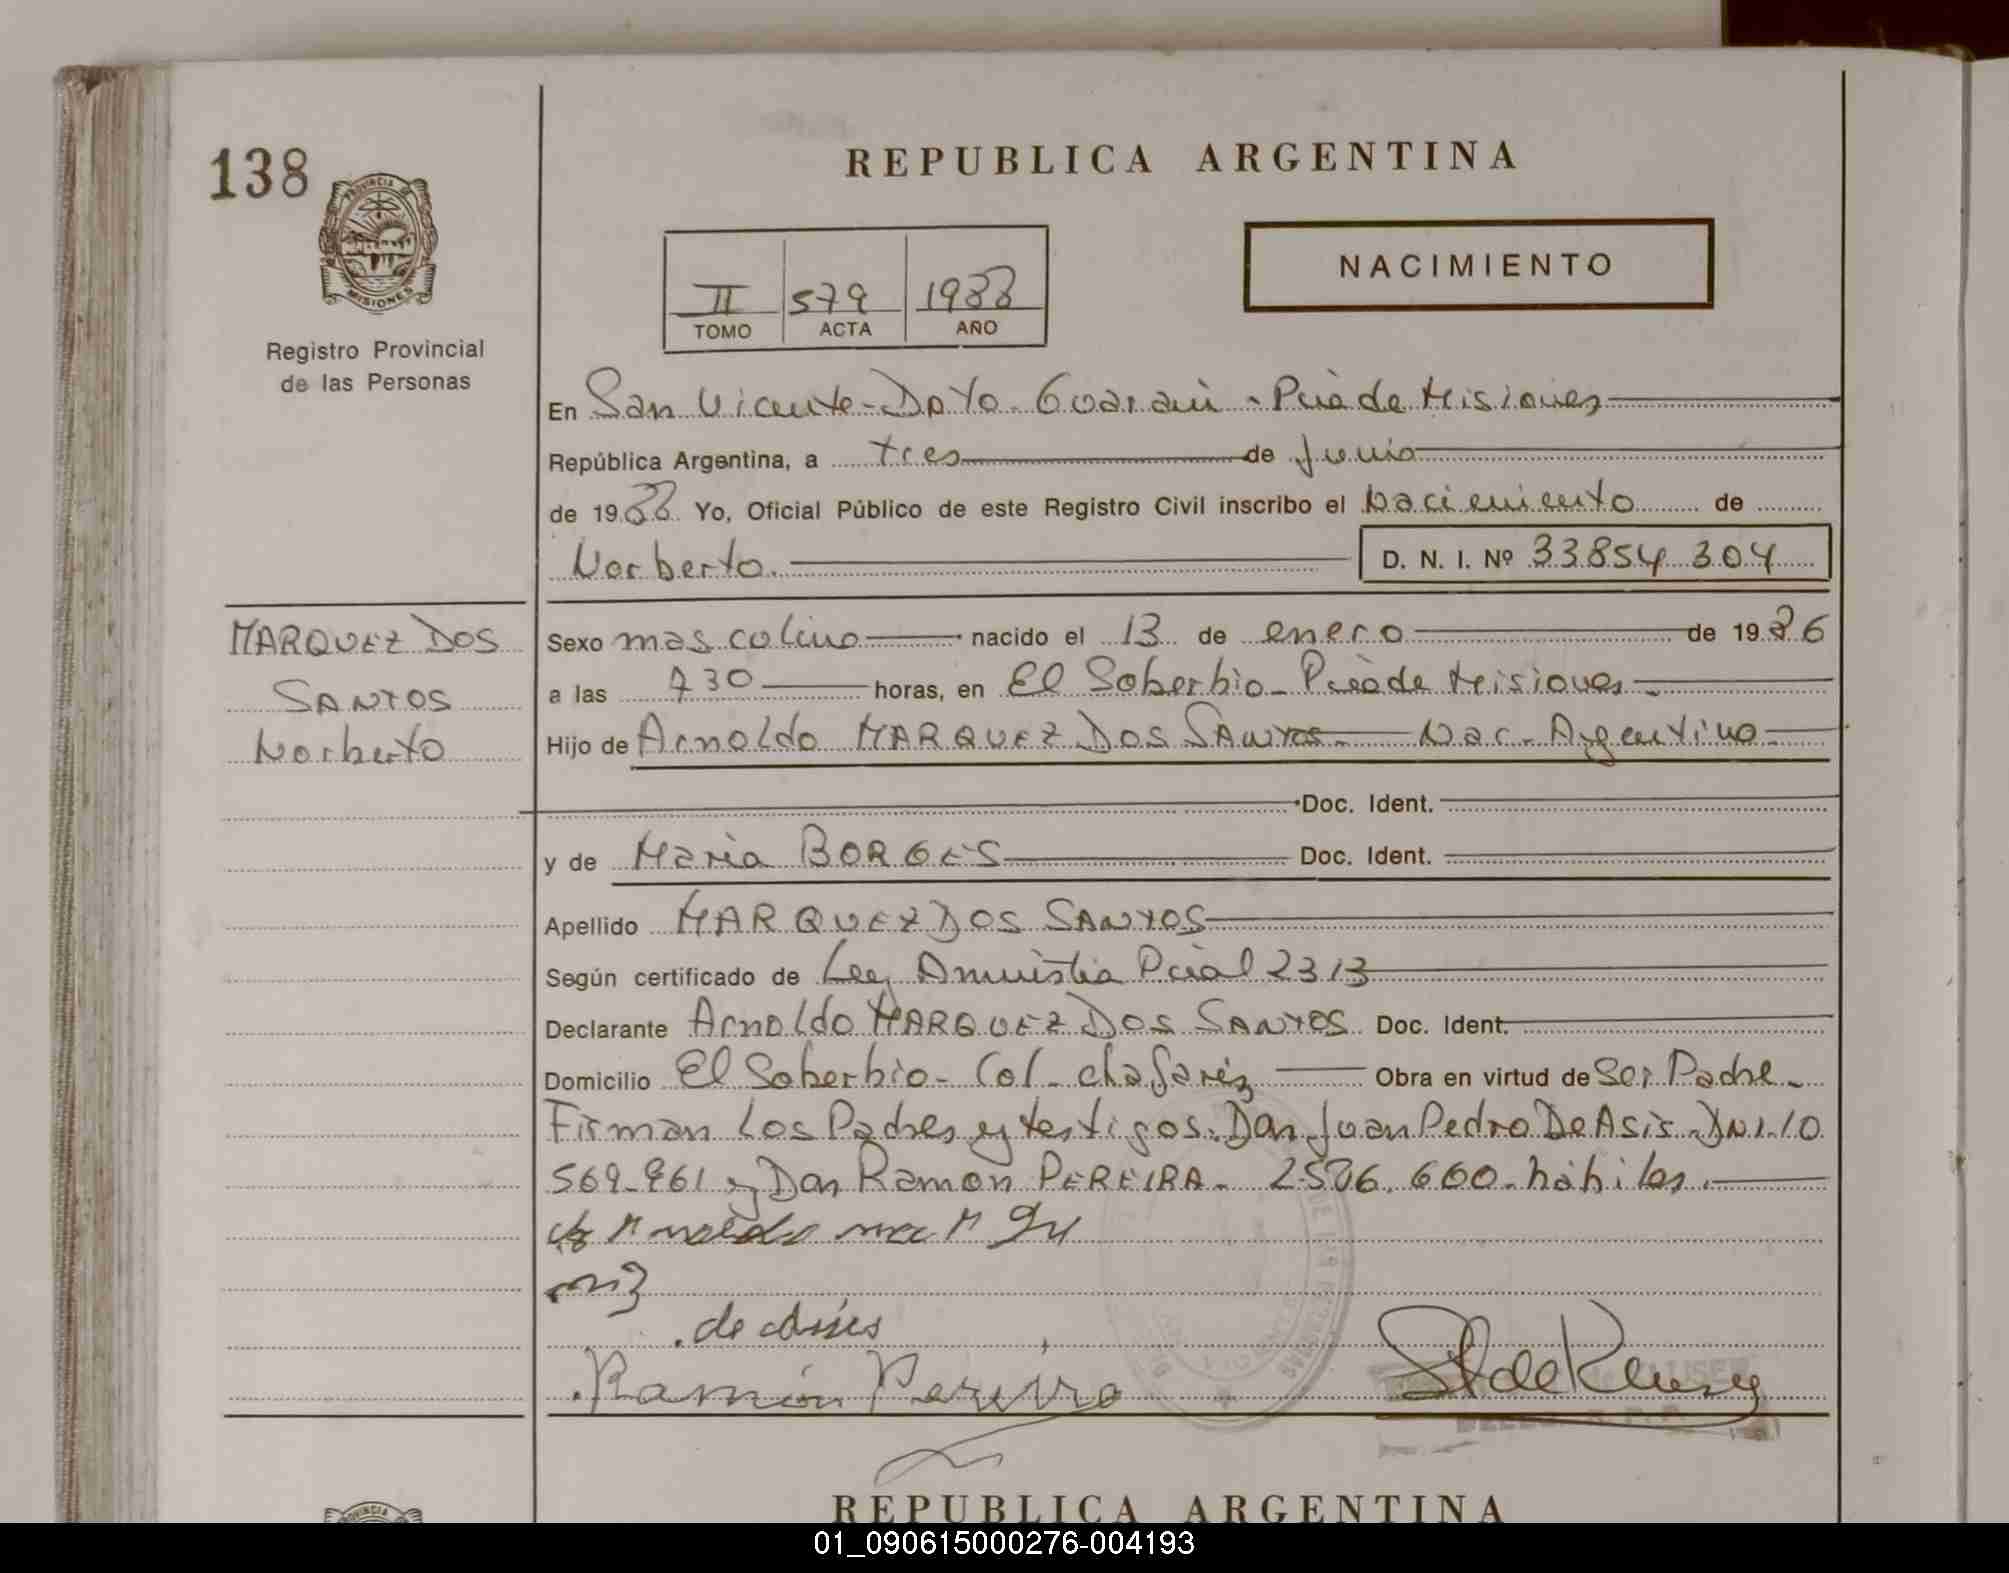 138
PROVINCIA DE
MISIONES
Registro Provincial
de las Personas
REPUBLICA ARGENTINA
NACIMIENTO
II 579 1988
TOMO ACTA AÑO
En San Vicente - Dpto. Guaraní - Pcia de Misiones
República Argentina, a tres de Junio
de 1988 Yo, Oficial Público de este Registro Civil inscribo el Nacimiento de
Norberto. D. N. I. Nº 33854 304
MARQUEZ DOS
SANTOS
Norberto
Sexo masculino nacido el 13 de enero de 1986
a las 730 horas, en El Soberbio - Pcia de Misiones -
Hijo de Arnoldo MARQUEZ DOS SANTOS - Nac. Argentino -
Doc. Ident.
y de Maria BORGES Doc. Ident.
Apellido MARQUEZ DOS SANTOS
Según certificado de Ley Amnistia Pcial 2313
Declarante Arnoldo MARQUEZ DOS SANTOS Doc. Ident.
Domicilio El Soberbio - Col. Chafariz Obra en virtud de ser Padre -
Firman los Padres y testigos: Don Juan Pedro De Asis - DNI. 10
569-961 y Don Ramon PEREIRA - 2586.600 - hábiles.
Ramón Pereira
REPUBLICA ARGENTINA
01_090615000276-004193